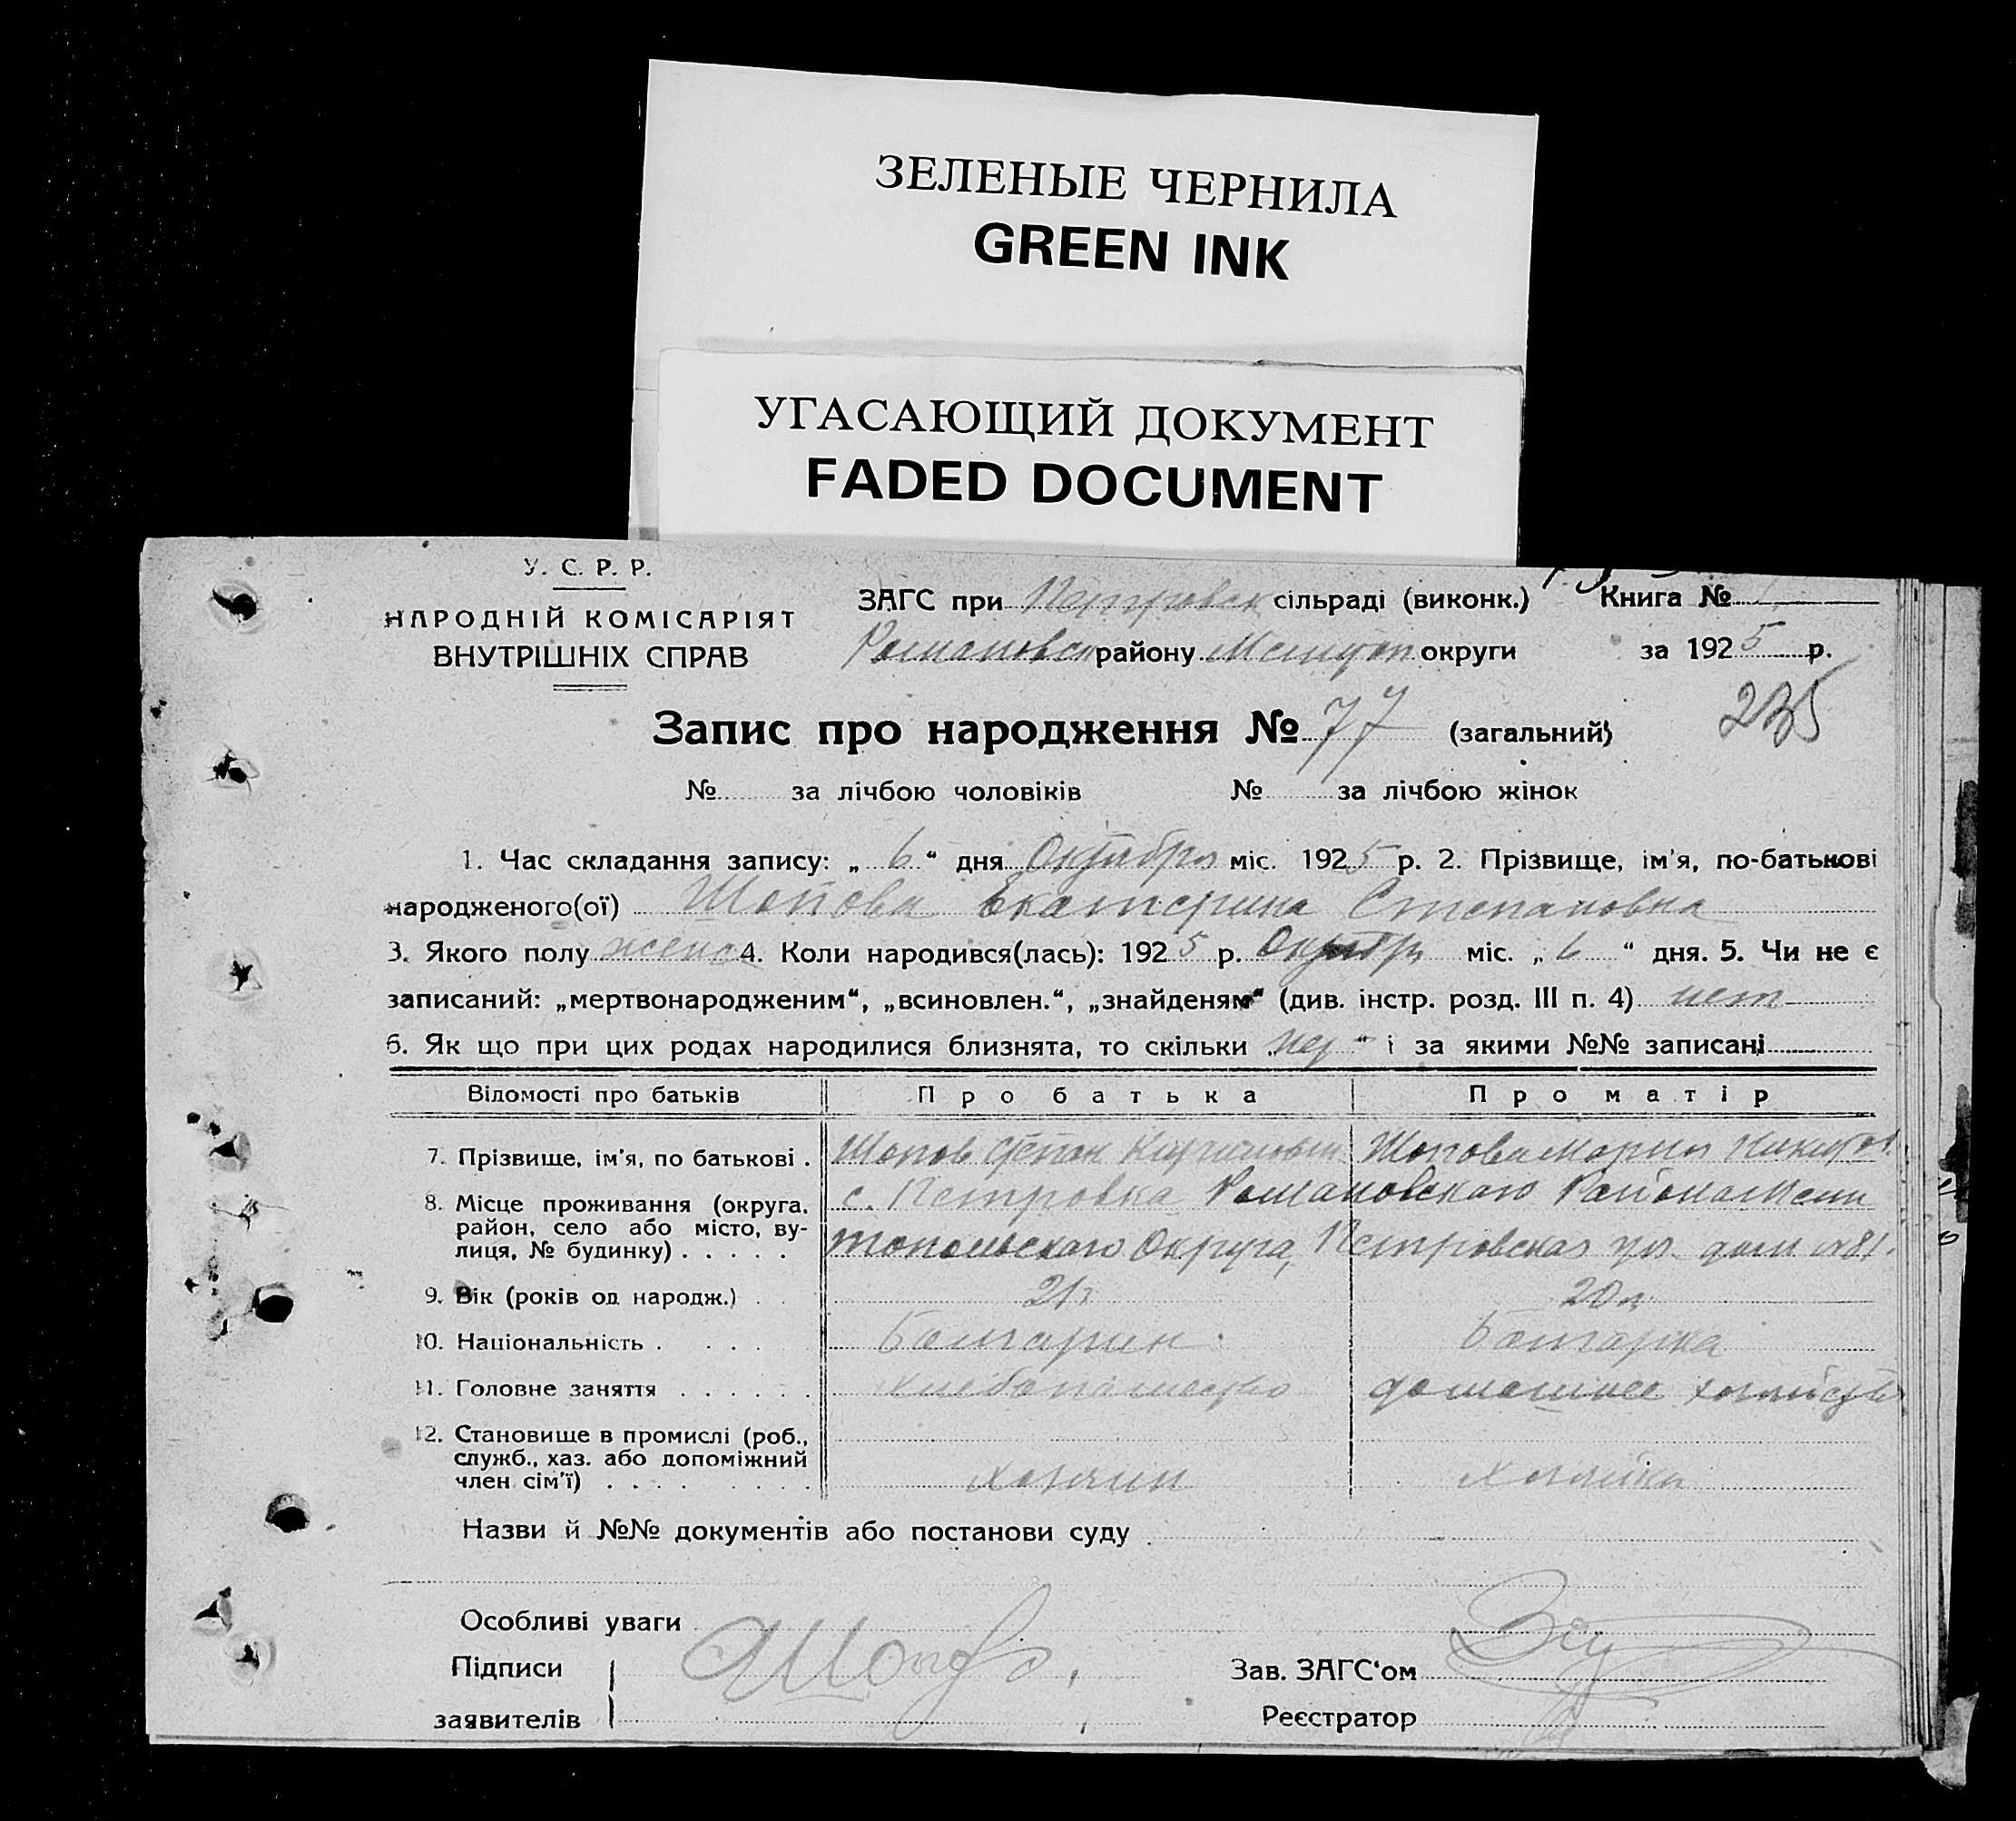 ЗЕЛЕНЫЕ ЧЕРНИЛА
GREEN INK
УГАСАЮЩИЙ ДОКУМЕНТ
FADED DOCUMENT
У. С. Р. Р.
НАРОДНІЙ КОМІСАРІЯТ
ВНУТРІШНІХ СПРАВ
ЗАГС при Петровск сільраді (виконк.) Книга №
Романовск району Мелитоп округи за 1925 р.
Запис про народження № 77 (загальний) 235
№ за лічбою чоловіків № за лічбою жінок
1. Час складання запису: „ 6 “ дня Октября міс. 1925 р. 2. Прізвище, ім'я, по-батькові
народженого(ої) Шопова Екатерина Степановна
3. Якого полу женс 4. Коли народився(лась): 1925 р. Октябр міс. „ 6 “ дня. 5. Чи не є
записаний: „мертвонародженим“, „всиновлен.“, „знайденям“ (див. інстр. розд. III п. 4) нет
6. Як що при цих родах народилися близнята, то скільки „ нет “ і за якими №№ записані
Відомості про батьків Про батька Про матір
7. Прізвище, ім'я, по батькові . Шопов Степан Шопова Мария
8. Місце проживання (округа, район, село або місто, вулиця, № будинку) . . . . . с. Петровка Романовского Района Мели
топольского Округа, Петровская ул. дом №81.
9. Вік (років од народж.) . . 21 г 20 л.
10. Національність . . . . Болгарин. Болгарка
11. Головне заняття . . . . . . хлебопашество домашнее хозяйство
12. Становище в промислі (роб.,
служб., хаз. або допоміжний
член сім'ї) . . . . . . . . хозяин хозяйка
Назви й №№ документів або постанови суду .
Особливі уваги
Підписи Шопов Зав. ЗАГС‘ом
заявителів Реєстратор